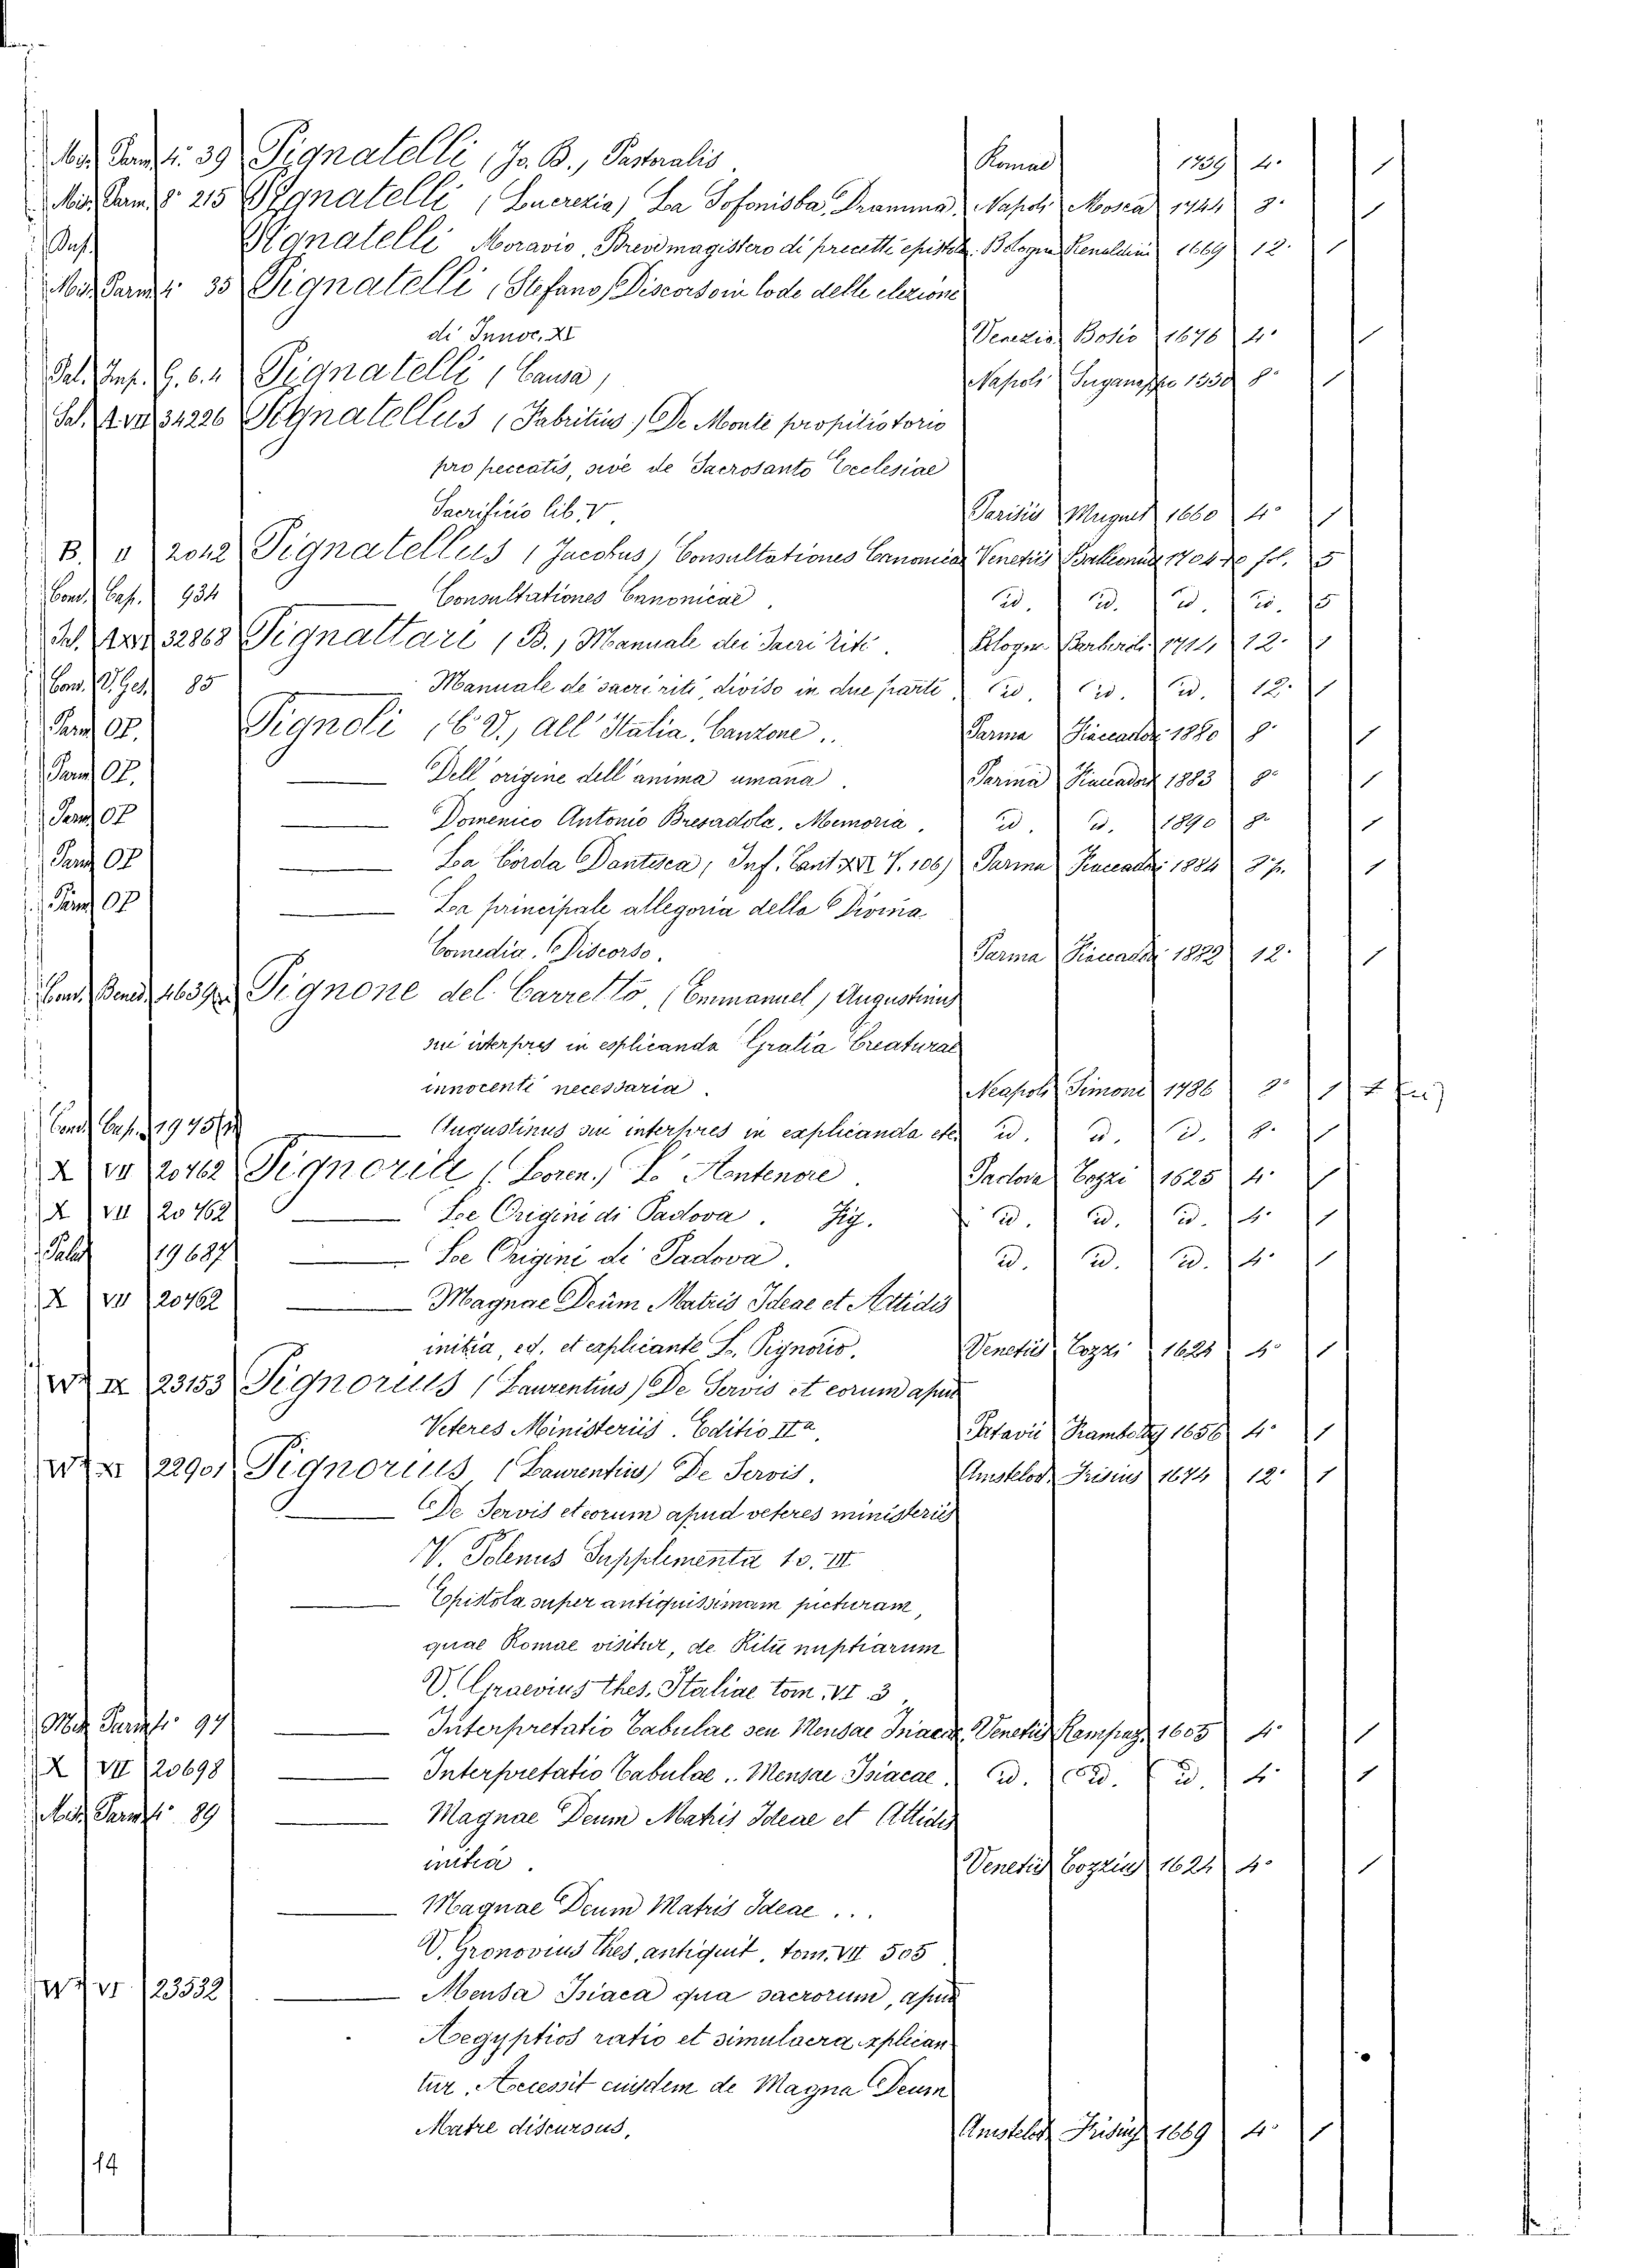 Mis. Parm. 4° 39 Pignatelli (Jo. B., Pastoralis. Romae 1739 4° 1
Mis. Parm. 8° 215 Pignatelli (Lucrezia) La Sofonisba, Dramma. Napoli Mosca 1744 8° 1
Pignatelli Moravio, Breve magistero di precetti epistol. Bologna 1669 12° 1
Mis. Parm. 4° 35 Pignatelli (Stefano) Discorso in lode delle elezione
di Innoc. XI Venezia Bosio 1676 4° 1
Pal. Imp. G. 6. 4 Pignatelli (Causa) Napoli 8° 1
Sal. 34226 Pignatellus (Fabritius) De Monte propitiatorio
pro peccatis, sive de Sacrosanto Ecclesiae
Sacrificio lib. V. Parisiis Muguet 1660 4° 1
B. II 2042 Pignatellus (Jacobus) Consultationes Canonicae Venetiis 1704 fol. 5
Cond. Cap. 934 Consultationes Canonicae. id. id. id. id. 5
Sal. 32868 Pignattari (B., Manuale dei Sacri riti. Bologna 12° 1
Cond. 85 Manuale de sacri riti, diviso in due parte. id. id. id. 12° 1
Parm. OP. Pignoli (C. V., all' Italia, Canzone.. Parma Fiaccadori 1880 8° 1
Parm. OP. Dell' origine dell' anima umana. Parma Fiaccadori 1883 8° 1
Parm. OP Domenico Antonio Bresadola, Memoria. id. id. 1890 8° 1
Parm. OP La Corda Dantesca (Inf. Cant XVI V. 106) Parma Fiaccadori 1884 8° 1
Parm. OP La principale allegoria della Divina
Comedia, Discorso. Parma Fiaccadori 1882 12° 1
Cond. Bened. 4639 Pignone del Carretto, (Emmanuel) Augustinus
sui interpres in explicanda Gratia Creaturae
innocenti necessaria. Neapoli Simone 1786 8° 1
Cond. Cap. 1975 Augustinus sui interpres in explicanda etc. id. id. id. 8° 1
X VII 20762 Pignoria (Loren.) L' Antenore. Padova Tozzi 1625 4° 1
X VII 20762 Le Origini di Padova. Fig. id. id. id. 4° 1
Palat 19687 Le Origini di Padova. id. id. id. 4° 1
X VII 20762 Magnae Deum Matris Ideae et Attidis
initia, ed. et explicante L. Pignorio. Venetiis Tozzi 4° 1
W IX 23153 Pignorius (Laurentius) De Servis et eorum apud
Veteres Ministeriis. Editio IIa. Patavii Frambotty 1656 4° 1
W 22901 Pignorius (Laurentius) De Servis. Amstelod. Frisius 1674 12° 1
De Servis et eorum apud veteres ministeriis
V. Polenus Supplementa to. III
Epistola super antiquissimam picturam,
quae Romae visitur, de Ritu nuptiarum
V. Graevius thes. Italiae tom. VI. 3.
Mis. Parm. 4° 97 Interpretatio Tabulae seu Mensae Isiacae. Venetiis Rampaz. 1605 4° 1
X VII 20698 Interpretatio Tabulae .. Mensae Isiacae. id. id. id. 4° 1
Mis. Parm. 4° 89 Magnae Deum Matris Ideae et Attidis
initia. Venetiis Tozzius 1624 4° 1
Magnae Deum Matris Ideae ...
V. Gronovius thes. antiquit. tom. VII 505
W VI 23532 Mensa Isiaca qua sacrorum, apud
Aegyptios ratio et simulacra explican
tur. Accessit eiusdem de Magna Deum
Matre discursus. Amstelod. Frisius 1669 4° 1
14